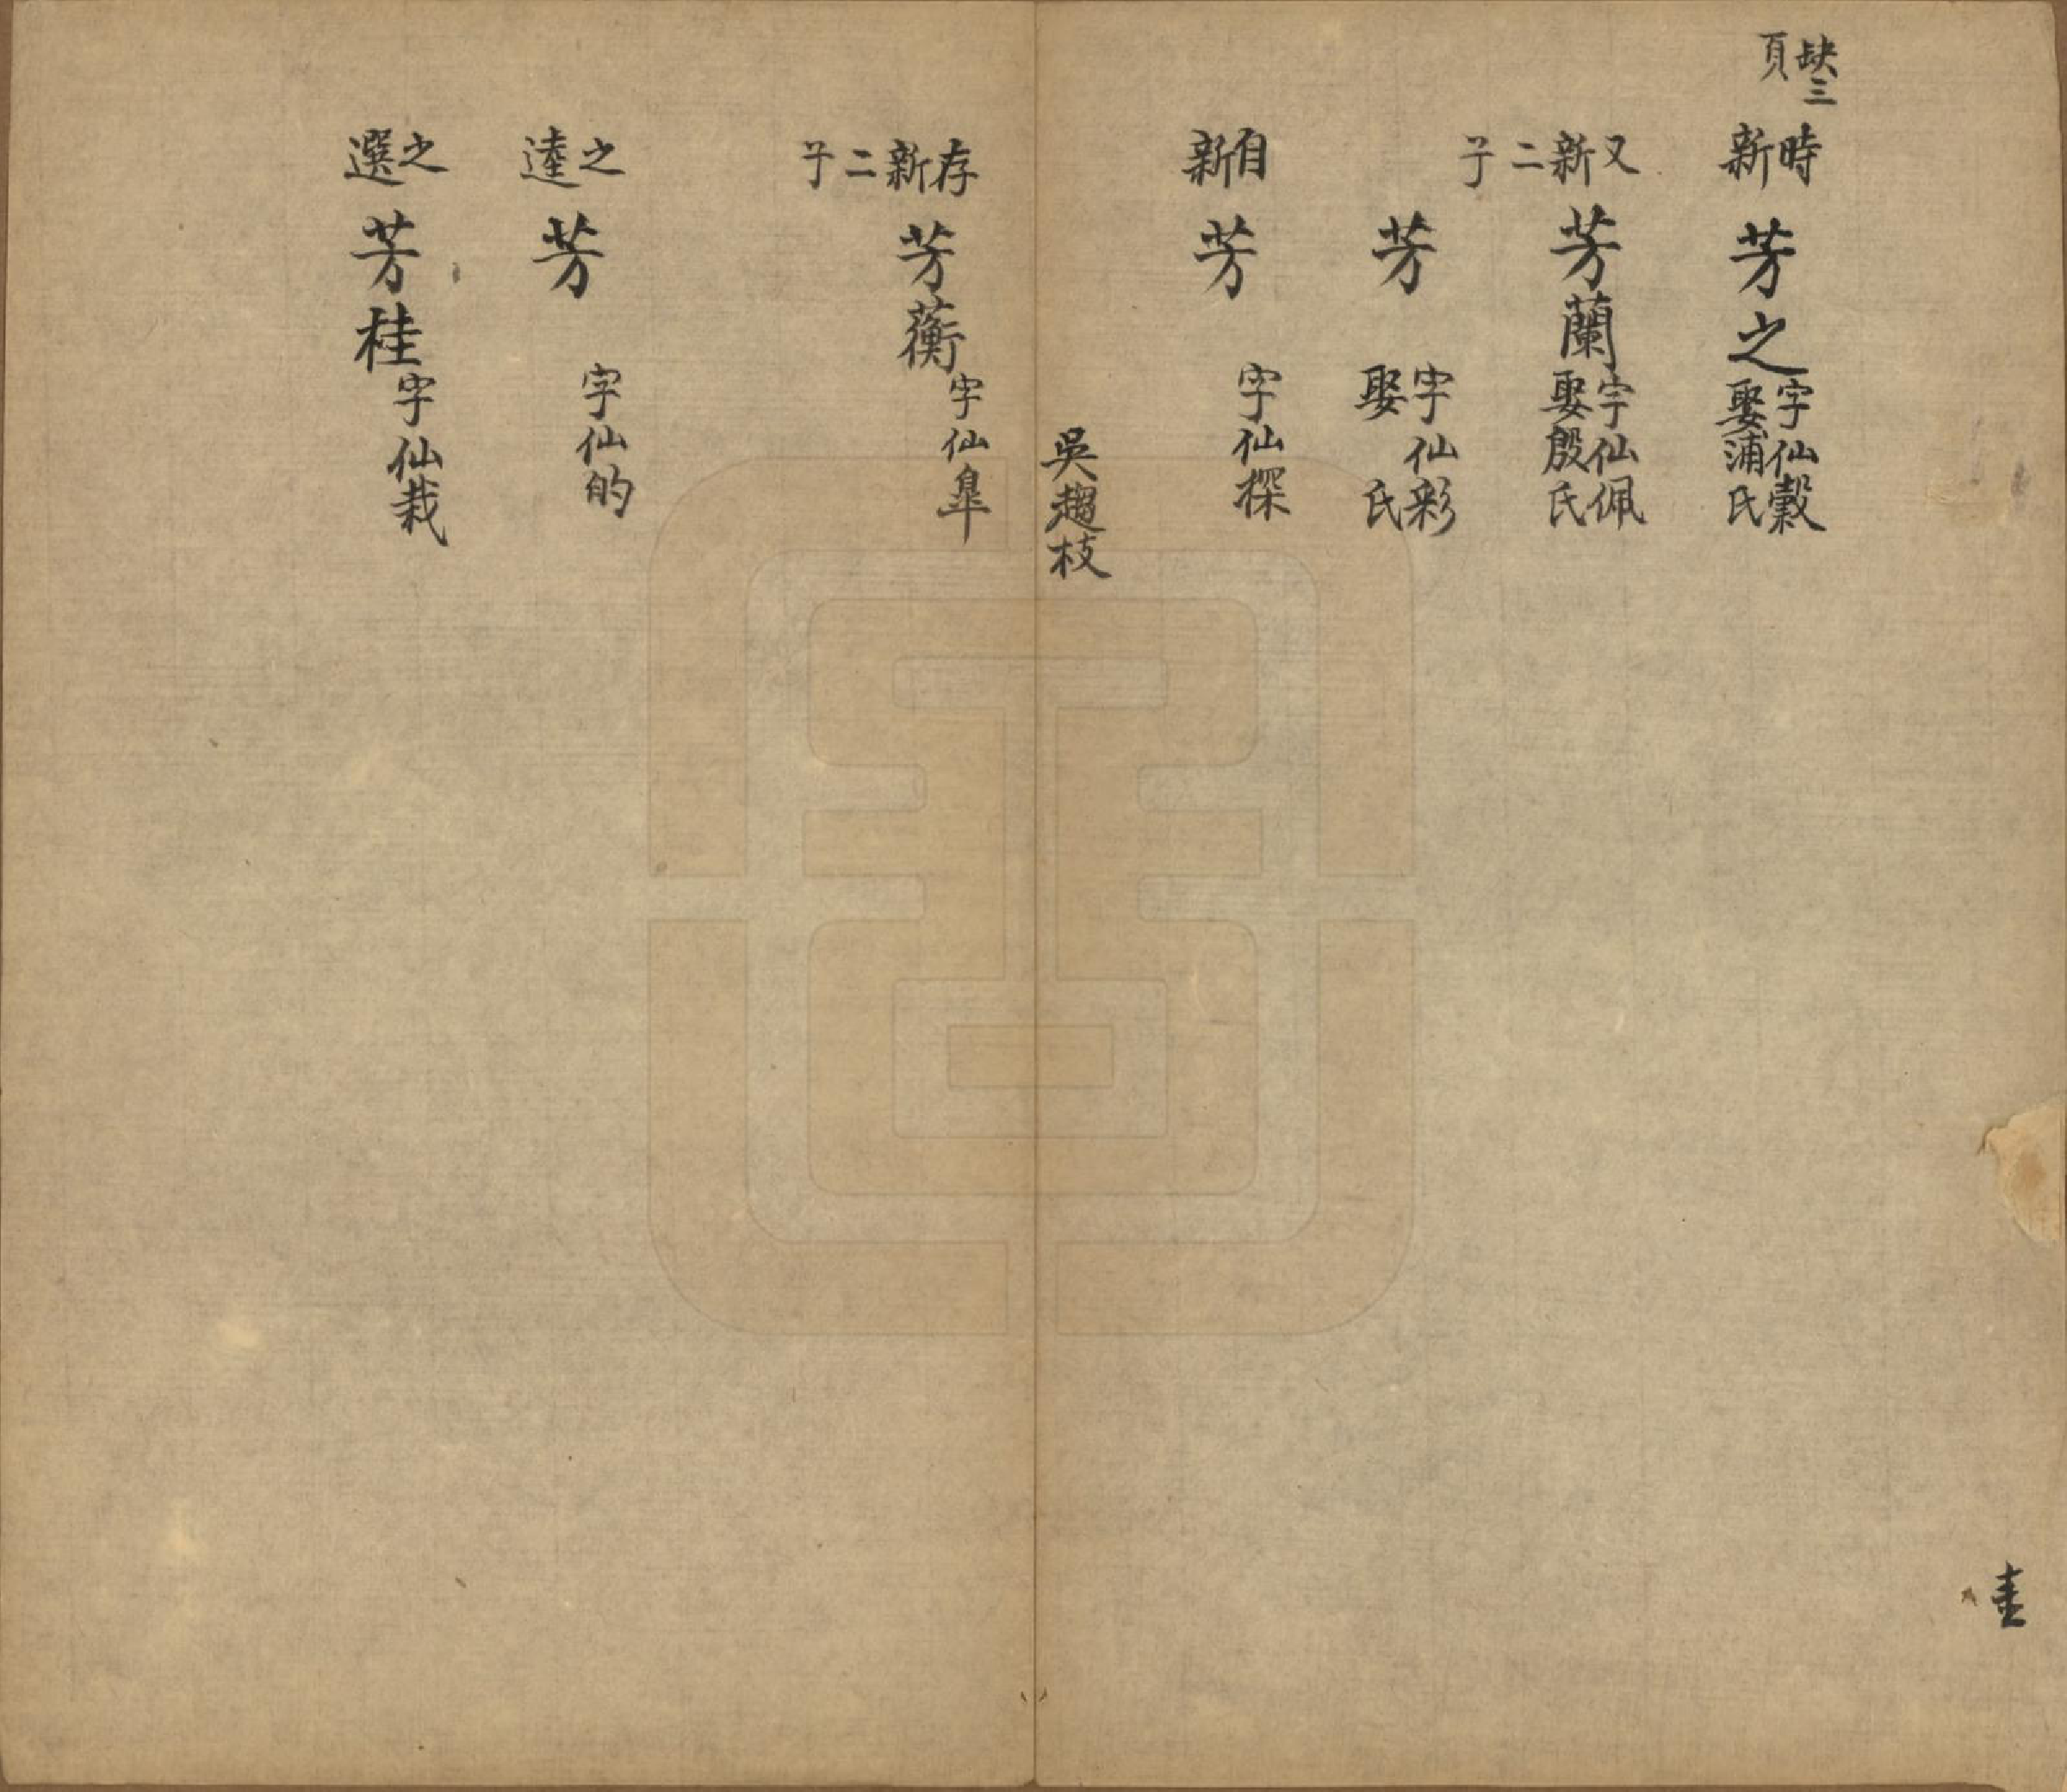 缺三頁
時新
芳之
字仙穀
娶浦氏
又新二子
芳蘭
字仙佩
娶殷氏
芳
字仙彩
娶 氏
自新
芳
字仙探
吳趨枝
存新二子
芳蘅
字仙皐
之逵
芳
字仙的
之選
芳桂
字仙栽